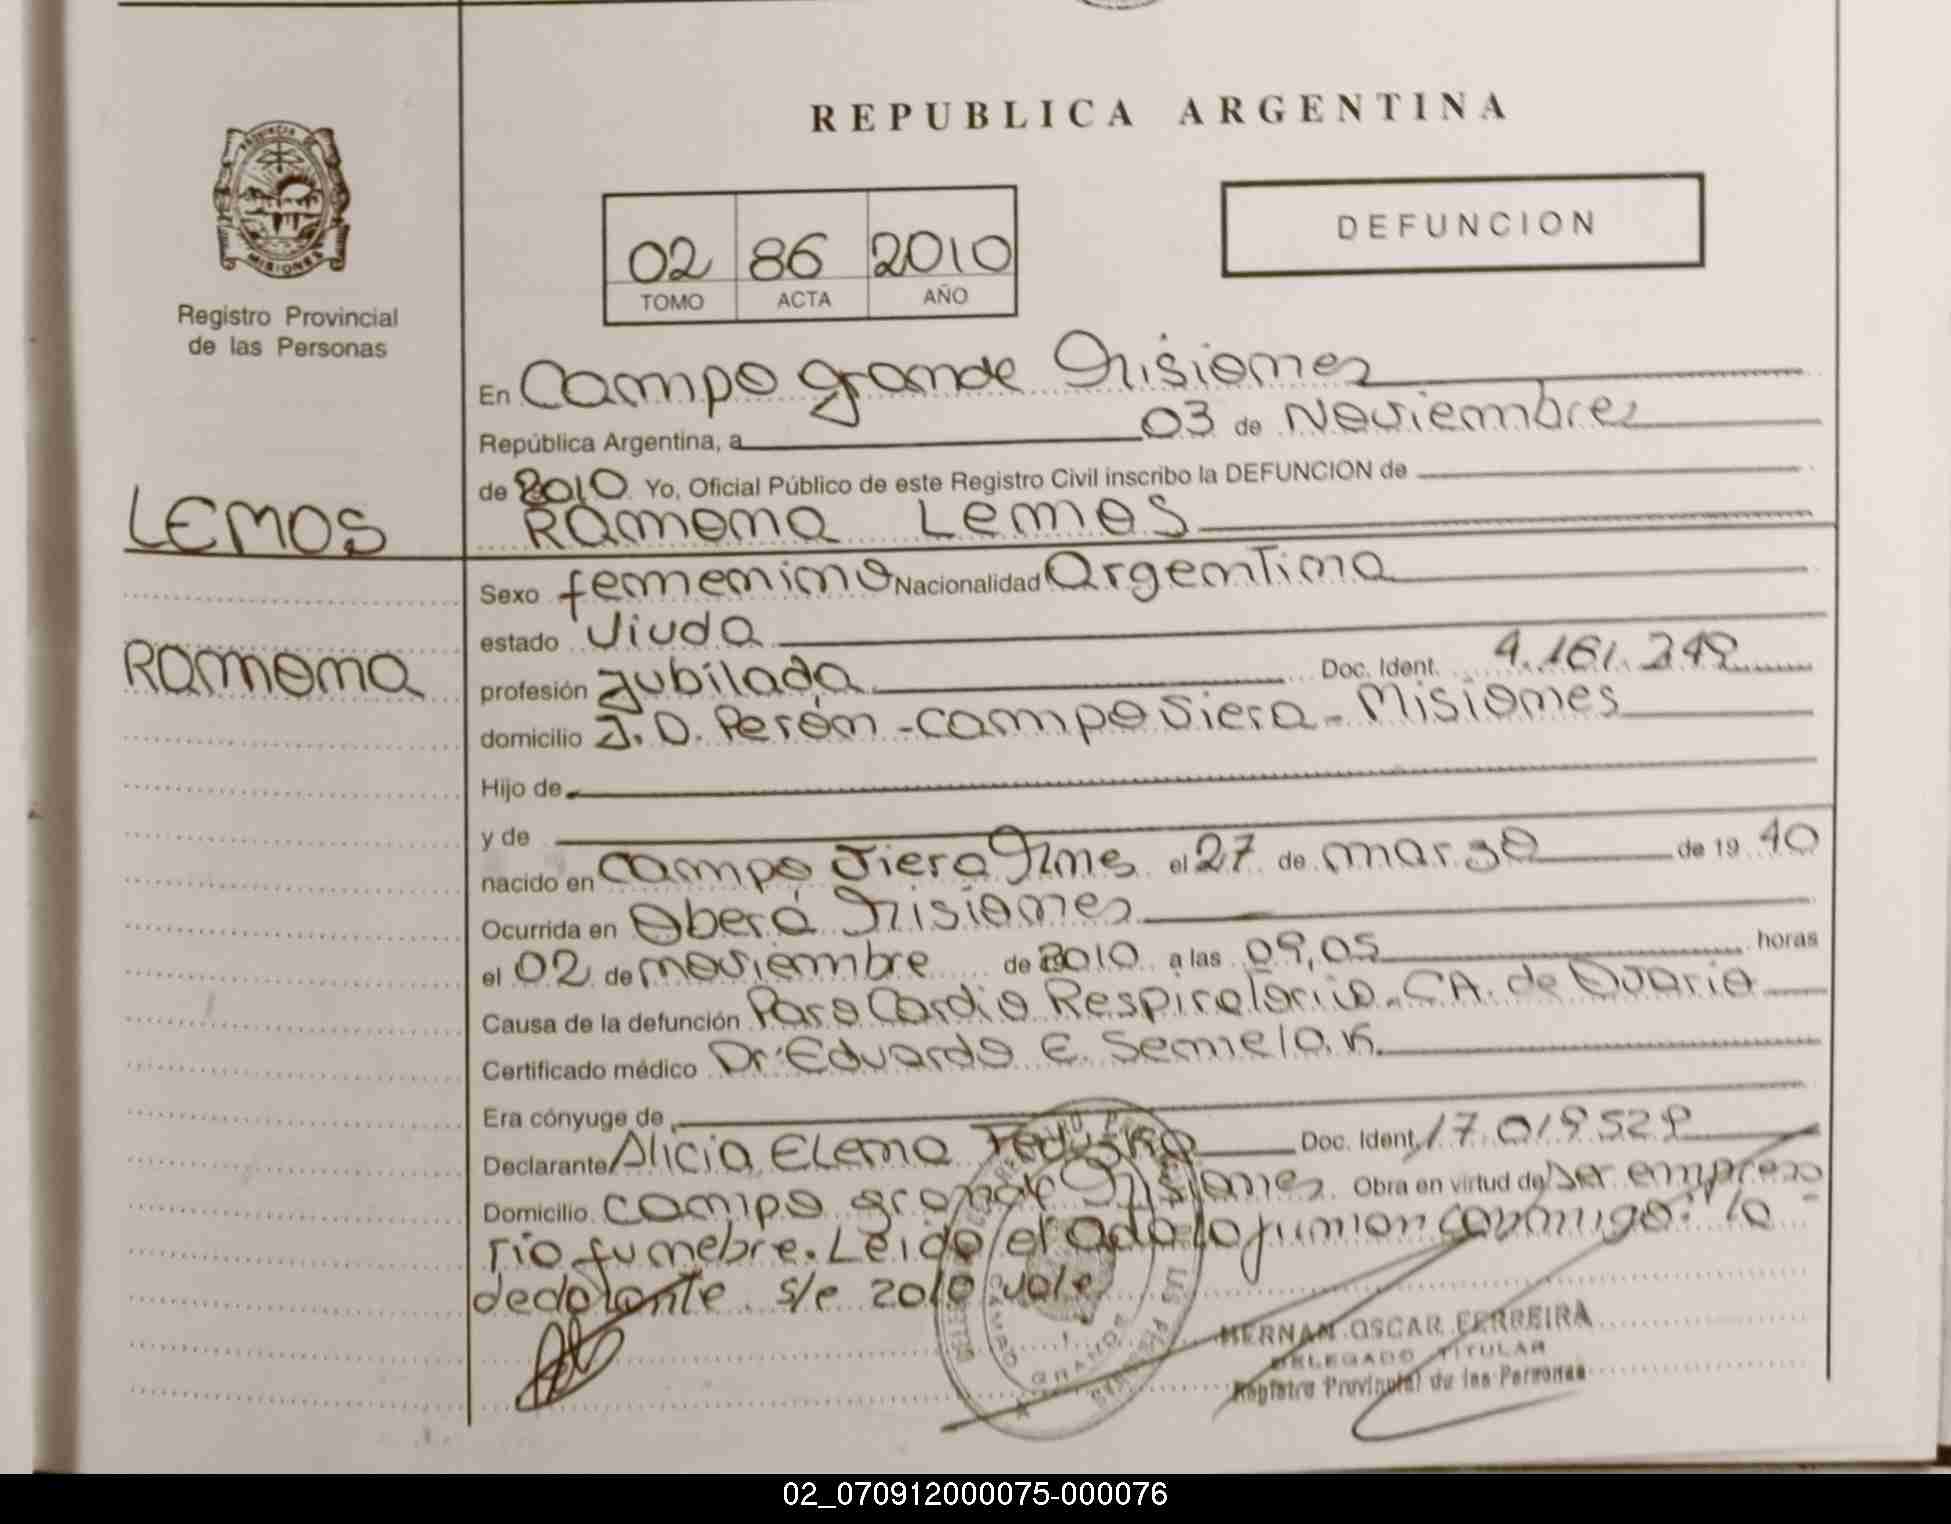 REPUBLICA ARGENTINA
PROVINCIA DE
MISIONES
Registro Provincial
de las Personas
02 86 2010
TOMO ACTA AÑO
DEFUNCION
En Campo grande Misiones
República Argentina, a 03 de Noviembre
de 2010 Yo, Oficial Público de este Registro Civil inscribo la DEFUNCION de
LEMOS
Ramona Lemos
Sexo femenino Nacionalidad Argentina
estado Viuda
RAMONA
profesión Jubilada Doc. Ident. 4.161.249
domicilio J. D. Perón - Campo Viera - Misiones
Hijo de
y de
nacido en Campo Viera Mnes el 27 de marzo de 19 40
Ocurrida en Oberá Misiones
el 02 de noviembre de 2010 a las 09,05 horas
Causa de la defunción Paro Cardio Respiratorio. CA. de Ovario
Certificado médico Dr. Eduardo E.
Era cónyuge de
Declarante Alicia Elena Doc. Ident. 17.019529
Domicilio Campo grande Misiones Obra en virtud de Ser empresa
rio funebre. Leido el acta lo firman conmigo: la
declarante s/e 2010 vale
HERNAN OSCAR FERREIRA
DELEGADO TITULAR
Registro Provincial de las Personas
02_070912000075-000076